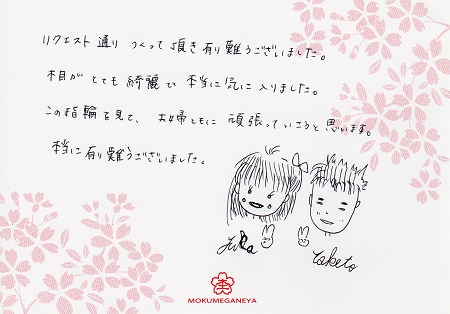 リクエスト通り つくって頂き有り難うございました。
木目がとても綺麗で本当に気に入りました。
この指輪を見て、夫婦ともに頑張っていこうと思います。
本当に有り難うございました。
taketo
MOKUMEGANEYA